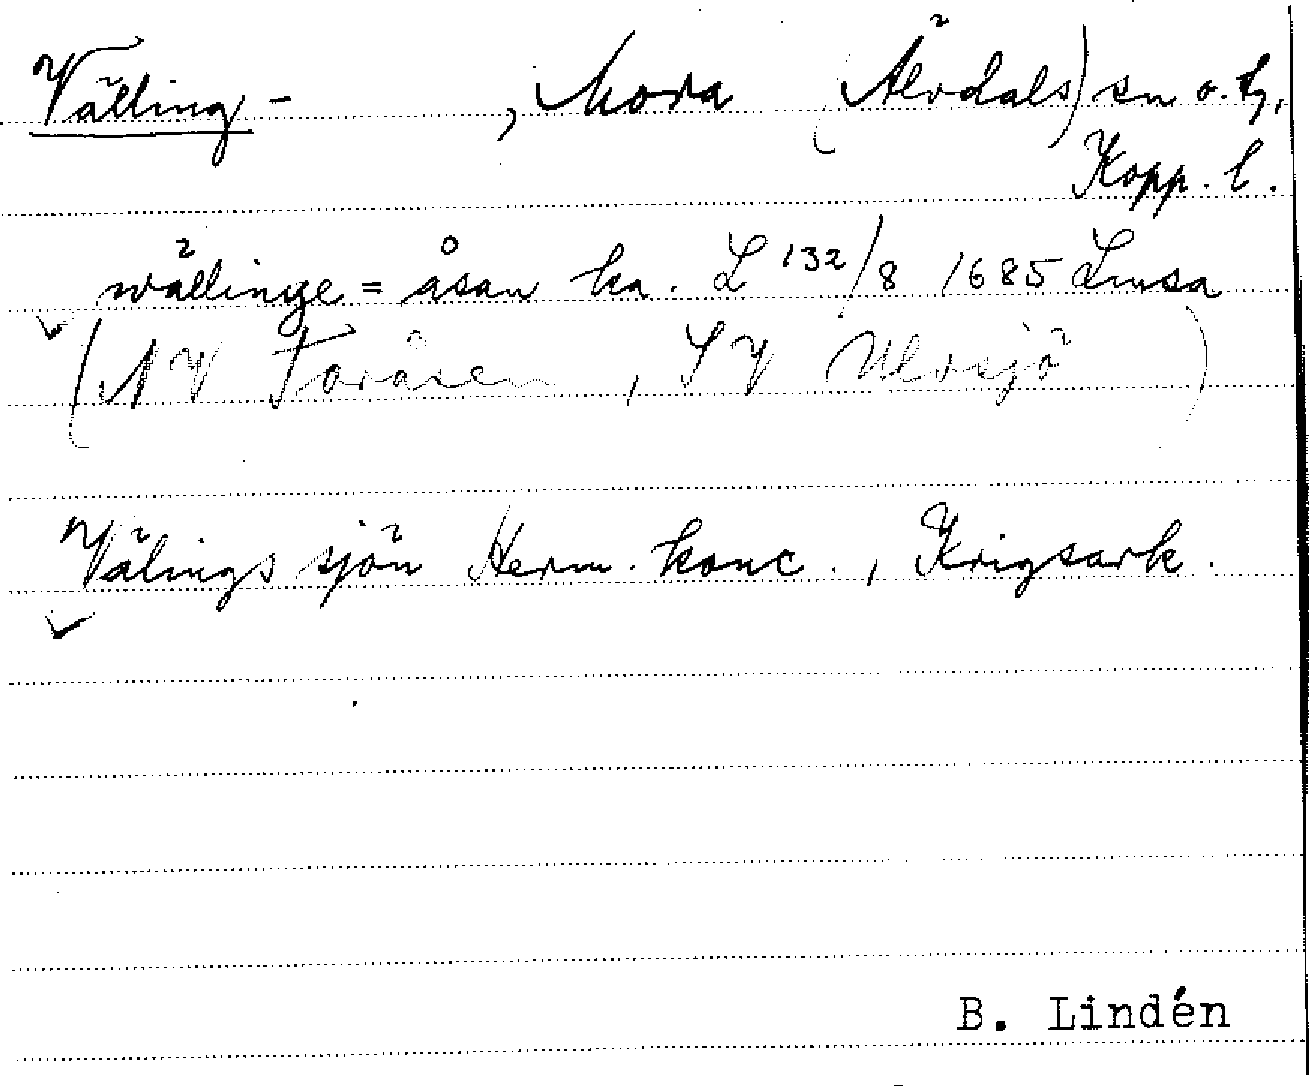 Välling- , Mora (Älvdals) sn o. tg,
Kopp. l.
wällinge = åsan ka. L 132/8 1685 Limsa
(NV Toråsen, SV Ulvsjö)
Välings sjön Herm. konc., Krigsark.
B. Lindén